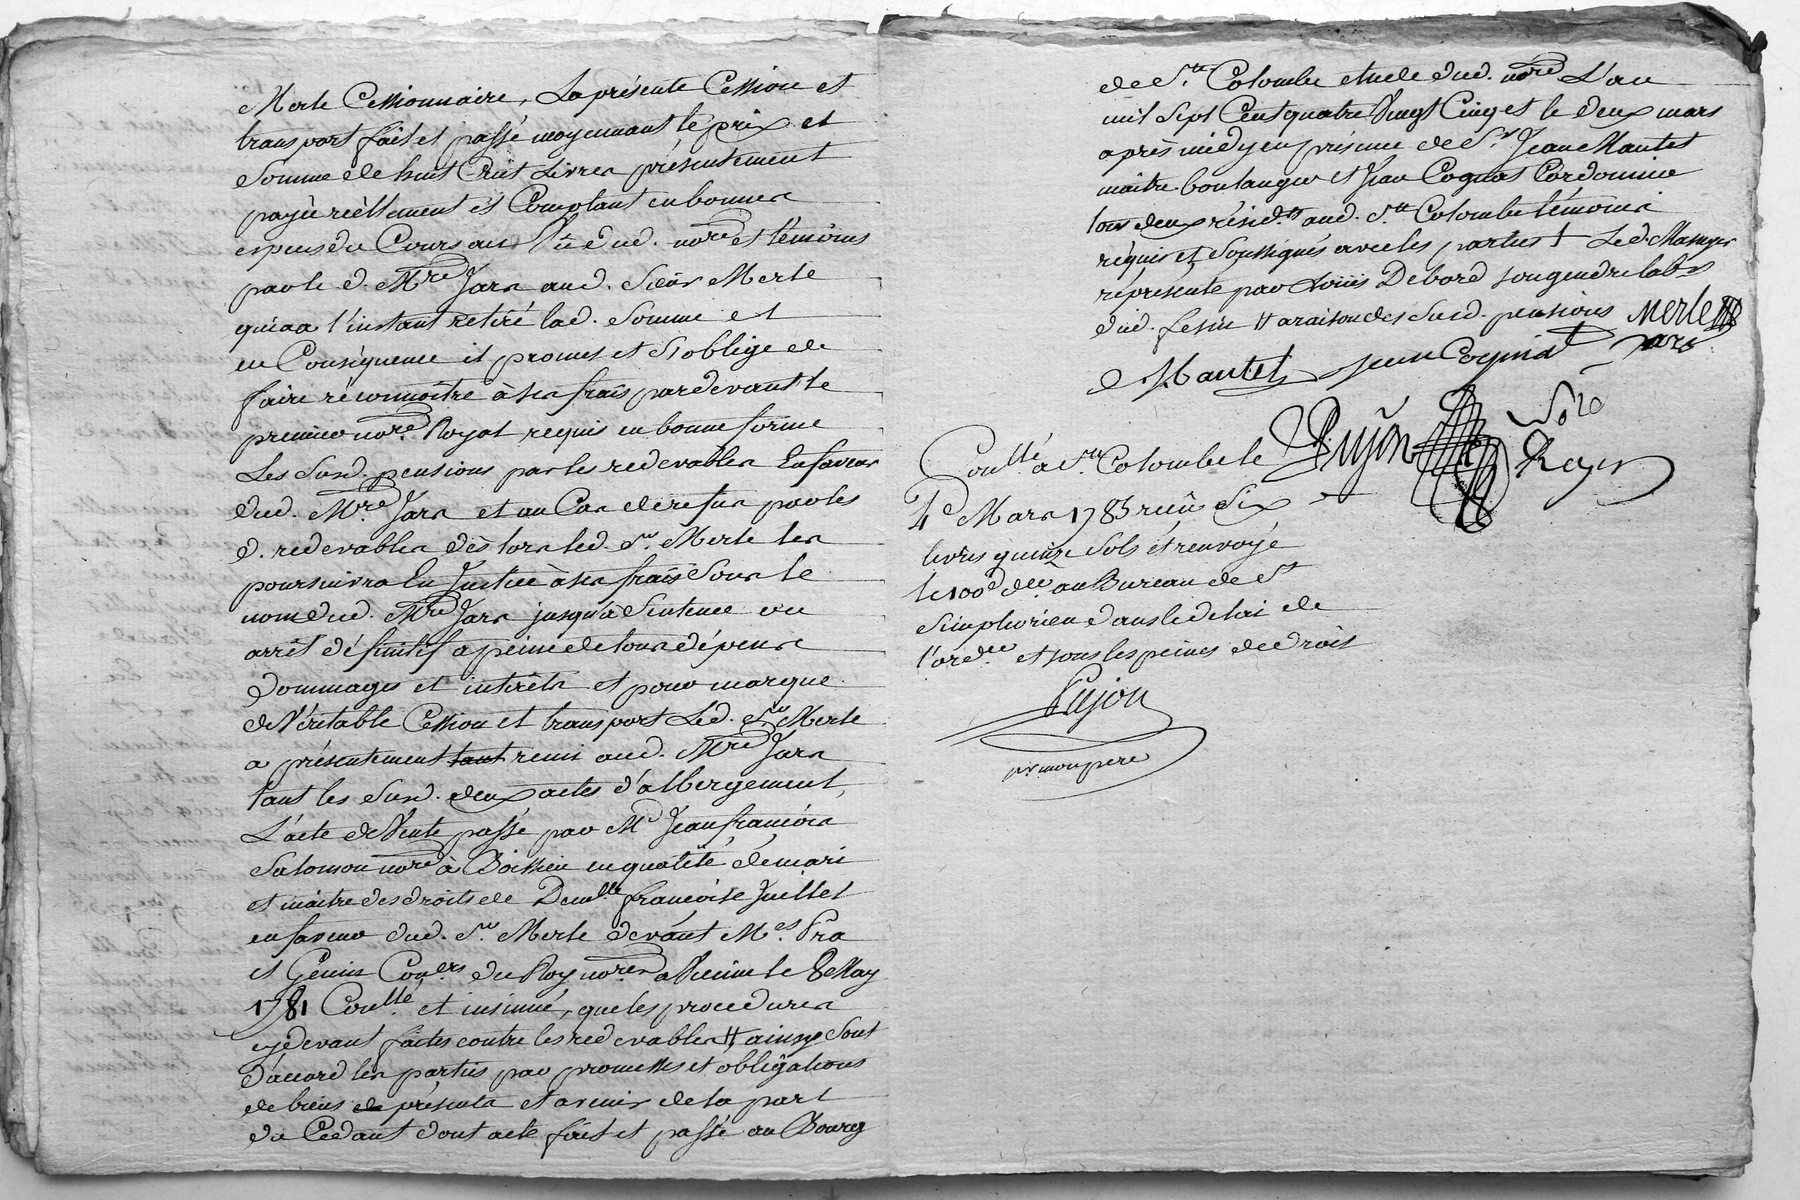 Merle Cessionnaire, La présente Cession et
transport fait et passé moyennant le prix et
Somme de huit Cent Livres présentement
payé réellement et Comptant en bonnes
espèces du Cours au Vû dud. nore et témoins
par le d. Mre Jars aud. Sieur Merle
qui a a l'instant retiré lad. Somme et
en Conséquence il promet et s'oblige de
faire réconnoître à ses frais pardevant le
premier nore Royal requis en bonne forme
Les Susd. pensions par les redevables En faveur
dud. Mre Jars et au Cas de refus par les
d. redevables dès lors led. Sr. Merle les
poursuivra En Justice à ses frais Sous le
nom dud. Mre Jars jusqu'à Sentence ou
arrêt définitif a peine de tous dépens
Dommages et intérêts et pour marque
de Véritable Cession et transport Led. Sr Merle
a présentement tant remis aud. Mre Jars
tant les Susd. deux actes d'albergement,
L'acte de Vente passé par Me Jean françois
Salomon nore à Boissieu en qualité de mari
et maitre des droits de Demlle françoise Juillet
en faveur dud. Sr. Merle devant Mes. Pra
et Genin Coners du Roy nores a Vienne le 8 May
1781 Conllé. et insinué, que les procedures
cydevant faites contre les redevables # ainsy Sont
d'accord les parties par promesses et obligations
de biens de présents et avenir de la part
du Cedant dont acte fait et passé au Bourg
de Ste Colombe etude dud. nore L'an
mil Sept Cent quatre Vingt Cinq et le deux mars
après midy en présence de Sr. Jean Mantet
maitre boulanger et Jean Cognat Cordonnier
tous deux résidts aud. Ste Colombe témoins
réquis et Soussignés avec les parties † Led. Manyer
réprésenté par Louis Debord son gendre labr
dud. lesin # a raison des Susd. pensions Merle
Mantet Jean Cognat Jars
Pujon Nore
Royal
Conllé a Ste. Colombe le
4e Mars 1785 reçu Six
livres quinze Sols et renvoyé
le 100e der au Bureau de St
Simphorien dans le delai de
l'ordce et sous les peines de droit
Pujon
pr mon pere